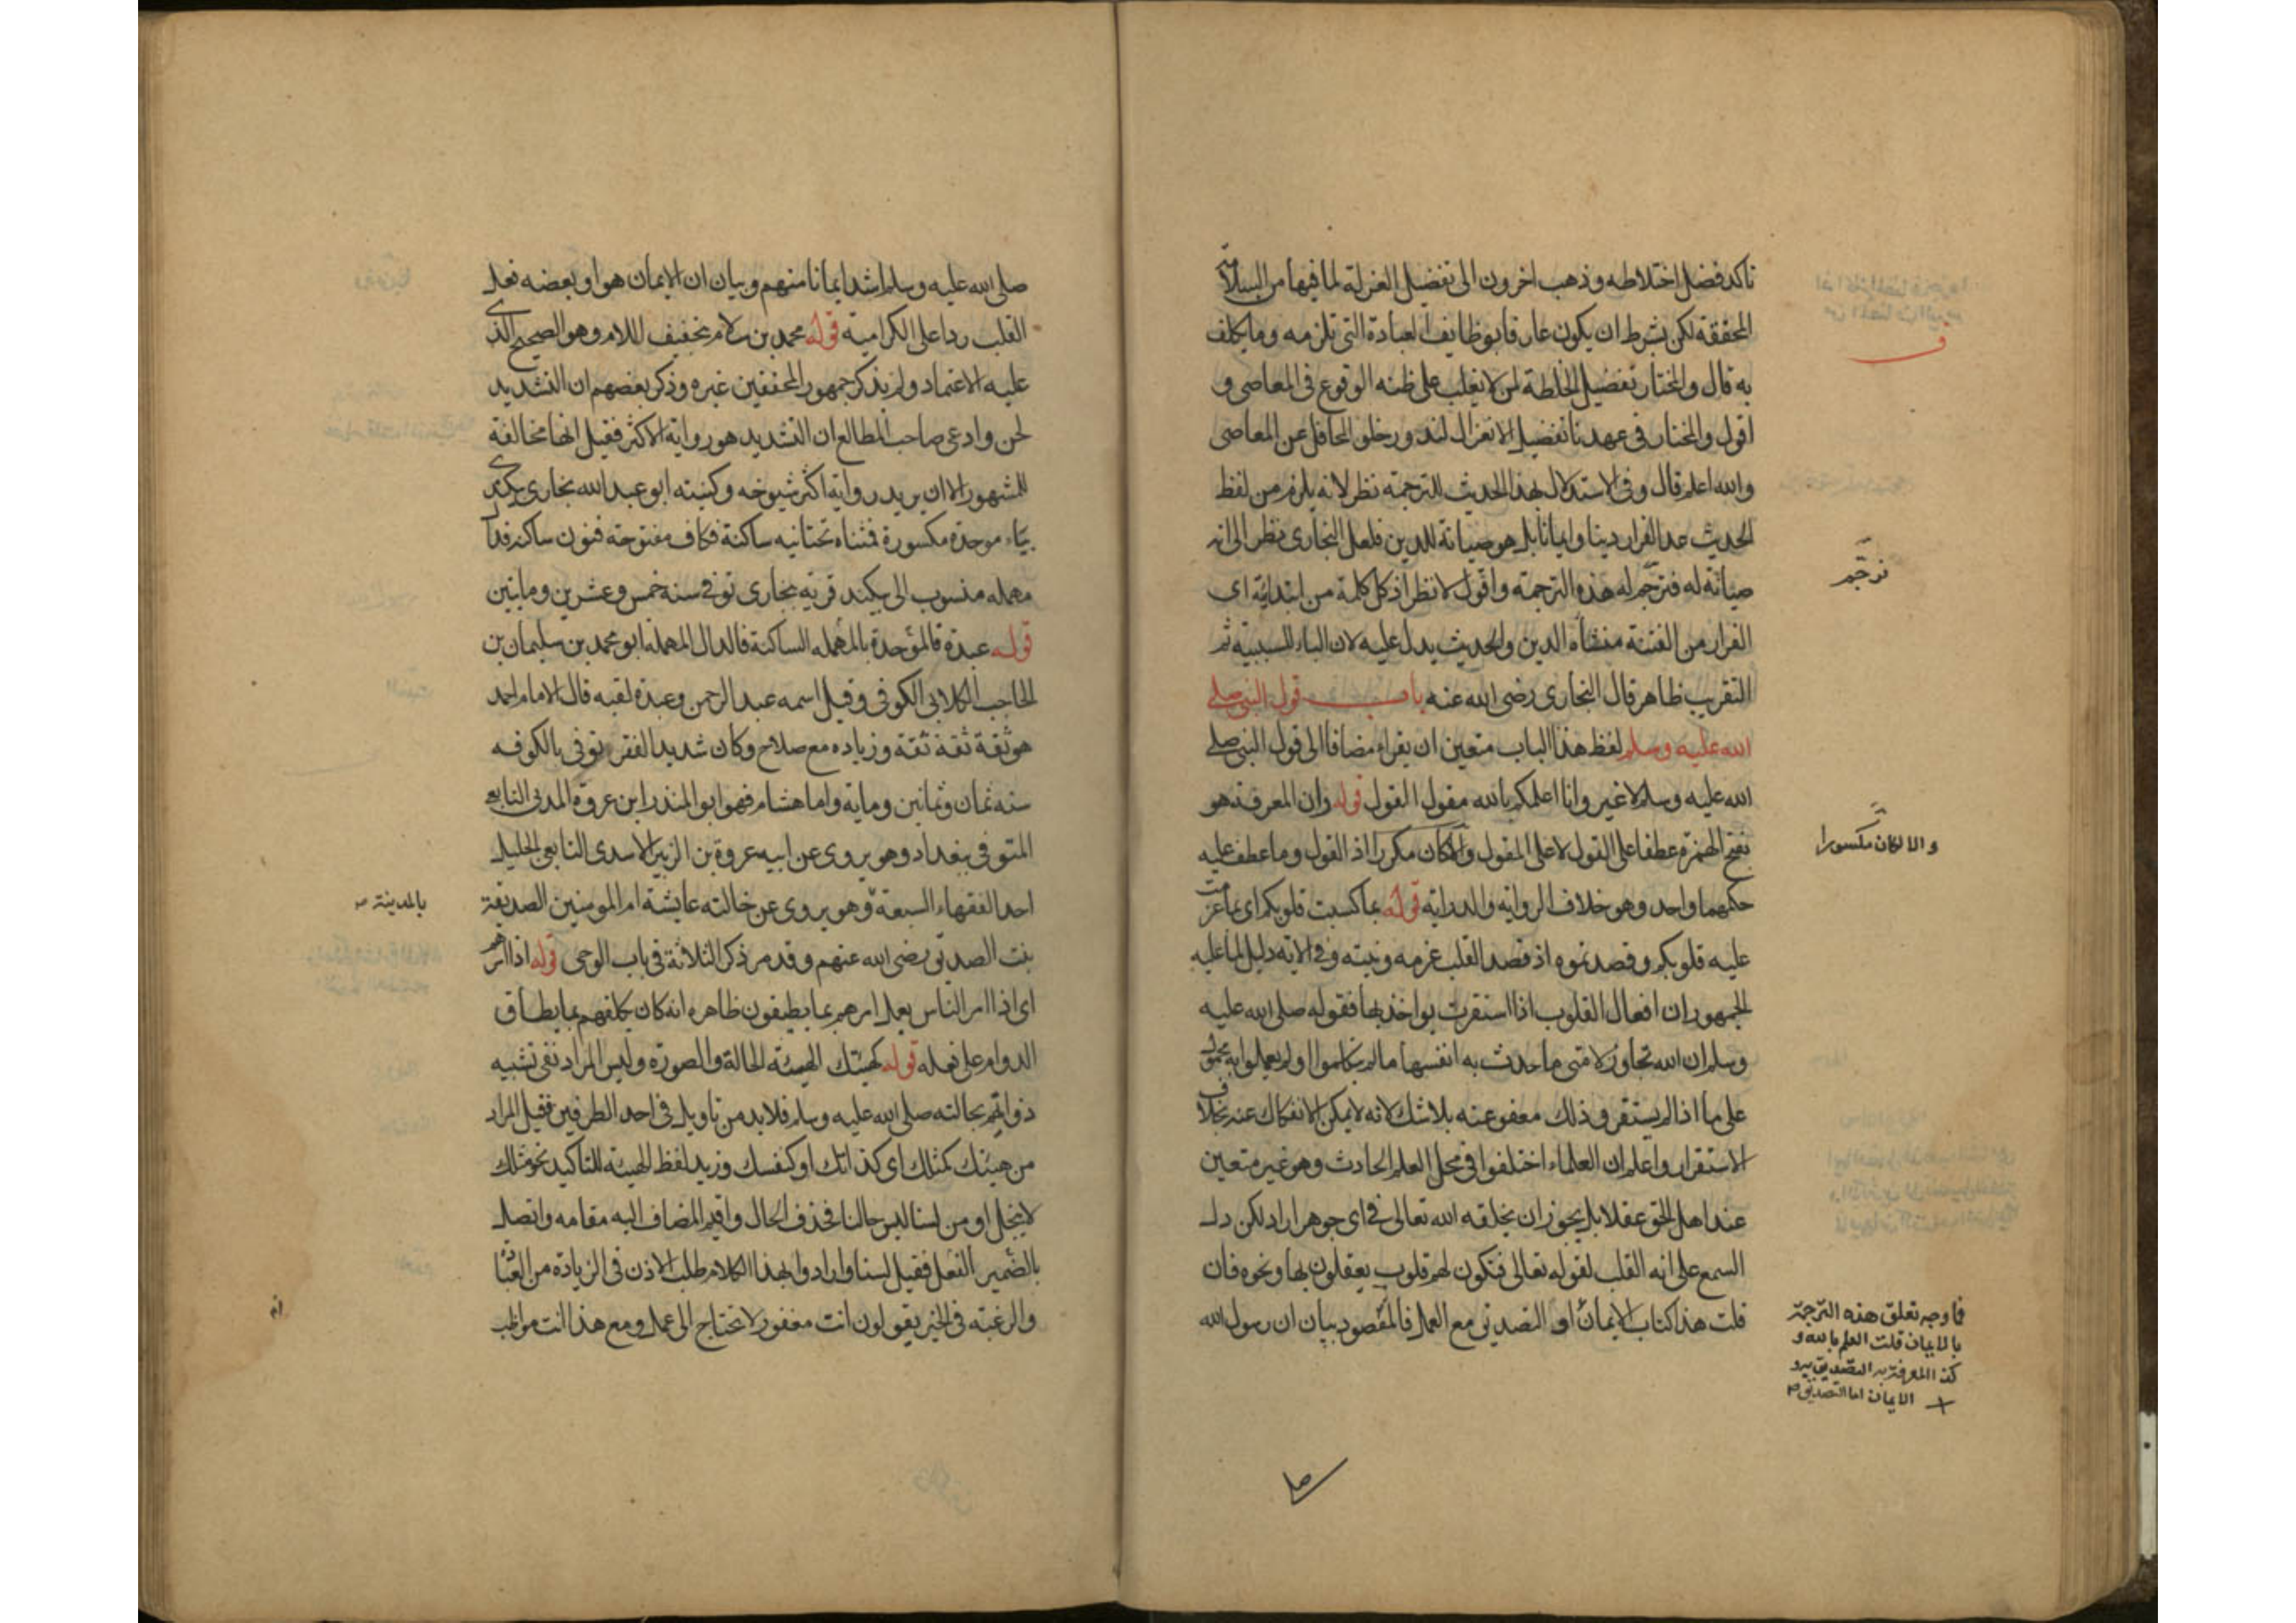 تاكد فضل اختلاطه وذهب اخرون الى تفضيل العزلة لما فيها من السلامة
المحققة لكن بشرط ان يكون عارفا بوظايف العبادة التى تلزمه وما يكلف
به قال والمختار تفضيل الخلطة لمن لا يغلب على ظنه الوقوع فى المعاصى و
اقول والمختار فى عهدنا تفضيل الانعزال لندور خلو المحافل عن المعاصى
والله اعلم قال وفى الاستدلال بهذا الحديث للترجمة نظر لانه يلزم من لفظ
الحديث عد الفرار دينا وايمانا بل هو صيانة للدين فلعل البخارى نظر الى انه
صيانة له فترجم له هذه الترجمة واقول لا نظر اذ كل كلمة من ابتدائية اى
الفرار من الفتنة منشأه الدين والحديث يدل عليه لان الباء للسببية ثم
التقريب ظاهر قال البخارى رضى الله عنه باب قول النبى صلى
الله عليه وسلم لفظ هذا الباب متعين ان يقراء مضافا الى قول النبى صلى
الله عليه وسلم لا غير وانا اعلمكم بالله مقول القول قوله وان المعرفة هو
بفتح الهمزة عطفا على القول لا على المقول والا لكان مكررا اذ القول وما عطف عليه
حكمهما واحد وهو خلاف الرواية والدراية قوله بما كسبت قلوبكم اى بما عزمت
عليه قلوبكم وقصدتموه اذ قصد القلب عزمه ونيته وفى الاية دليل لما عليه
الجمهور ان افعال القلوب اذا استقرت يواخذ بها فقوله صلى الله عليه
وسلم ان الله تجاوز لامتى ما حدثت به انفسها ما لم يتكلموا او لم يعملوا به محمول
على ما اذا لم يستقر وذلك معفو عنه بلا شك لانه لا يمكن الانفكاك عنه بخلاف
الاستقرار واعلم ان العلماء اختلفوا فى محل العلم الحادث وهو غير متعين
عند اهل الحق عقلا بل يجوز ان يخلقه الله تعالى فى اى جوهر اراد لكن دل
السمع على انه القلب لقوله تعالى فتكون لهم قلوب يعقلون بها ونحوه فان
قلت هذا كتاب الايمان او التصديق مع العمل فالمقصود بيان ان رسول الله
ترجم
والا لكان مكسورا
فما وجه تعلق هذه الترجمة
بالايمان قلت العلم بالله و
كذا المعرفة به التصديق به و
الايمان اما التصديق
صلى الله عليه وسلم اشد ايمانا منهم وبيان ان الايمان هو او بعضه فعل
القلب ردا على الكرامية قوله محمد بن سلام بتخفيف اللام وهو الصحيح الذى
عليه الاعتماد ولم يذكر جمهور المحققين غيره وذكر بعضهم ان التشديد
لحن وادعى صاحب المطالع ان التشديد هو رواية الاكثر فقيل انها مخالفة
للمشهور الا ان يريد رواية اكثر شيوخه وكنيته ابو عبد الله بخارى بيكندى
بباء موحدة مكسورة فمثناه تحتانيه ساكنة فكاف مفتوحة فنون ساكنه فدال
مهمله منسوب الى بيكند قرية ببخارى توفى سنه خمس وعشرين ومايتين
قوله عبدة فالموحدة بالمهمله الساكنة فالدال المهمله ابو محمد بن سليمان بن
الحاجب الكلابى الكوفى وقيل اسمه عبد الرحمن وعبدة لقبه قال الامام احمد
هو ثقة ثقة ثقة وزياده مع صلاح وكان شديد الفقر توفى بالكوفه
سنه ثمان وثمانين ومايه واما هشام فهو ابو المنذر ابن عروة المدنى التابعى
المتوفى ببغداد وهو يروى عن ابيه عروة بن الزبير الاسدى التابعى الجليل
احد الفقهاء السبعة وهو يروى عن خالته عايشة ام المومنين الصديقة
بنت الصديق رضى الله عنهم وقد مر ذكر الثلاثة فى باب الوحى قوله اذا امرهم
اى اذا امر الناس بعمل امرهم بما يطيقون ظاهره انه كان يكلفهم بما يطاق
الدوام على فعله قوله كهيئتك الهيئة الحالة والصورة وليس المراد نفى تشبيه
ذواتهم بحالته صلى الله عليه وسلم فلا بد من تاويل فى احد الطرفين فقيل المراد
من هيئتك كمثلك اى كذاتك او كنفسك وزيد لفظ الهيئة للتاكيد نحو مثلك
لا يبخل او من لسنا ليس حالنا فحذف الحال واقيم المضاف اليه مقامه واتصل
بالضمير الفعل فقيل لسنا وارادوا بهذا الكلام طلب الاذن فى الزيادة من العبادة
والرغبة فى الخير يقولون انت مغفور لا تحتاج الى عمل ومع هذا انت مواظب
بالمدينة